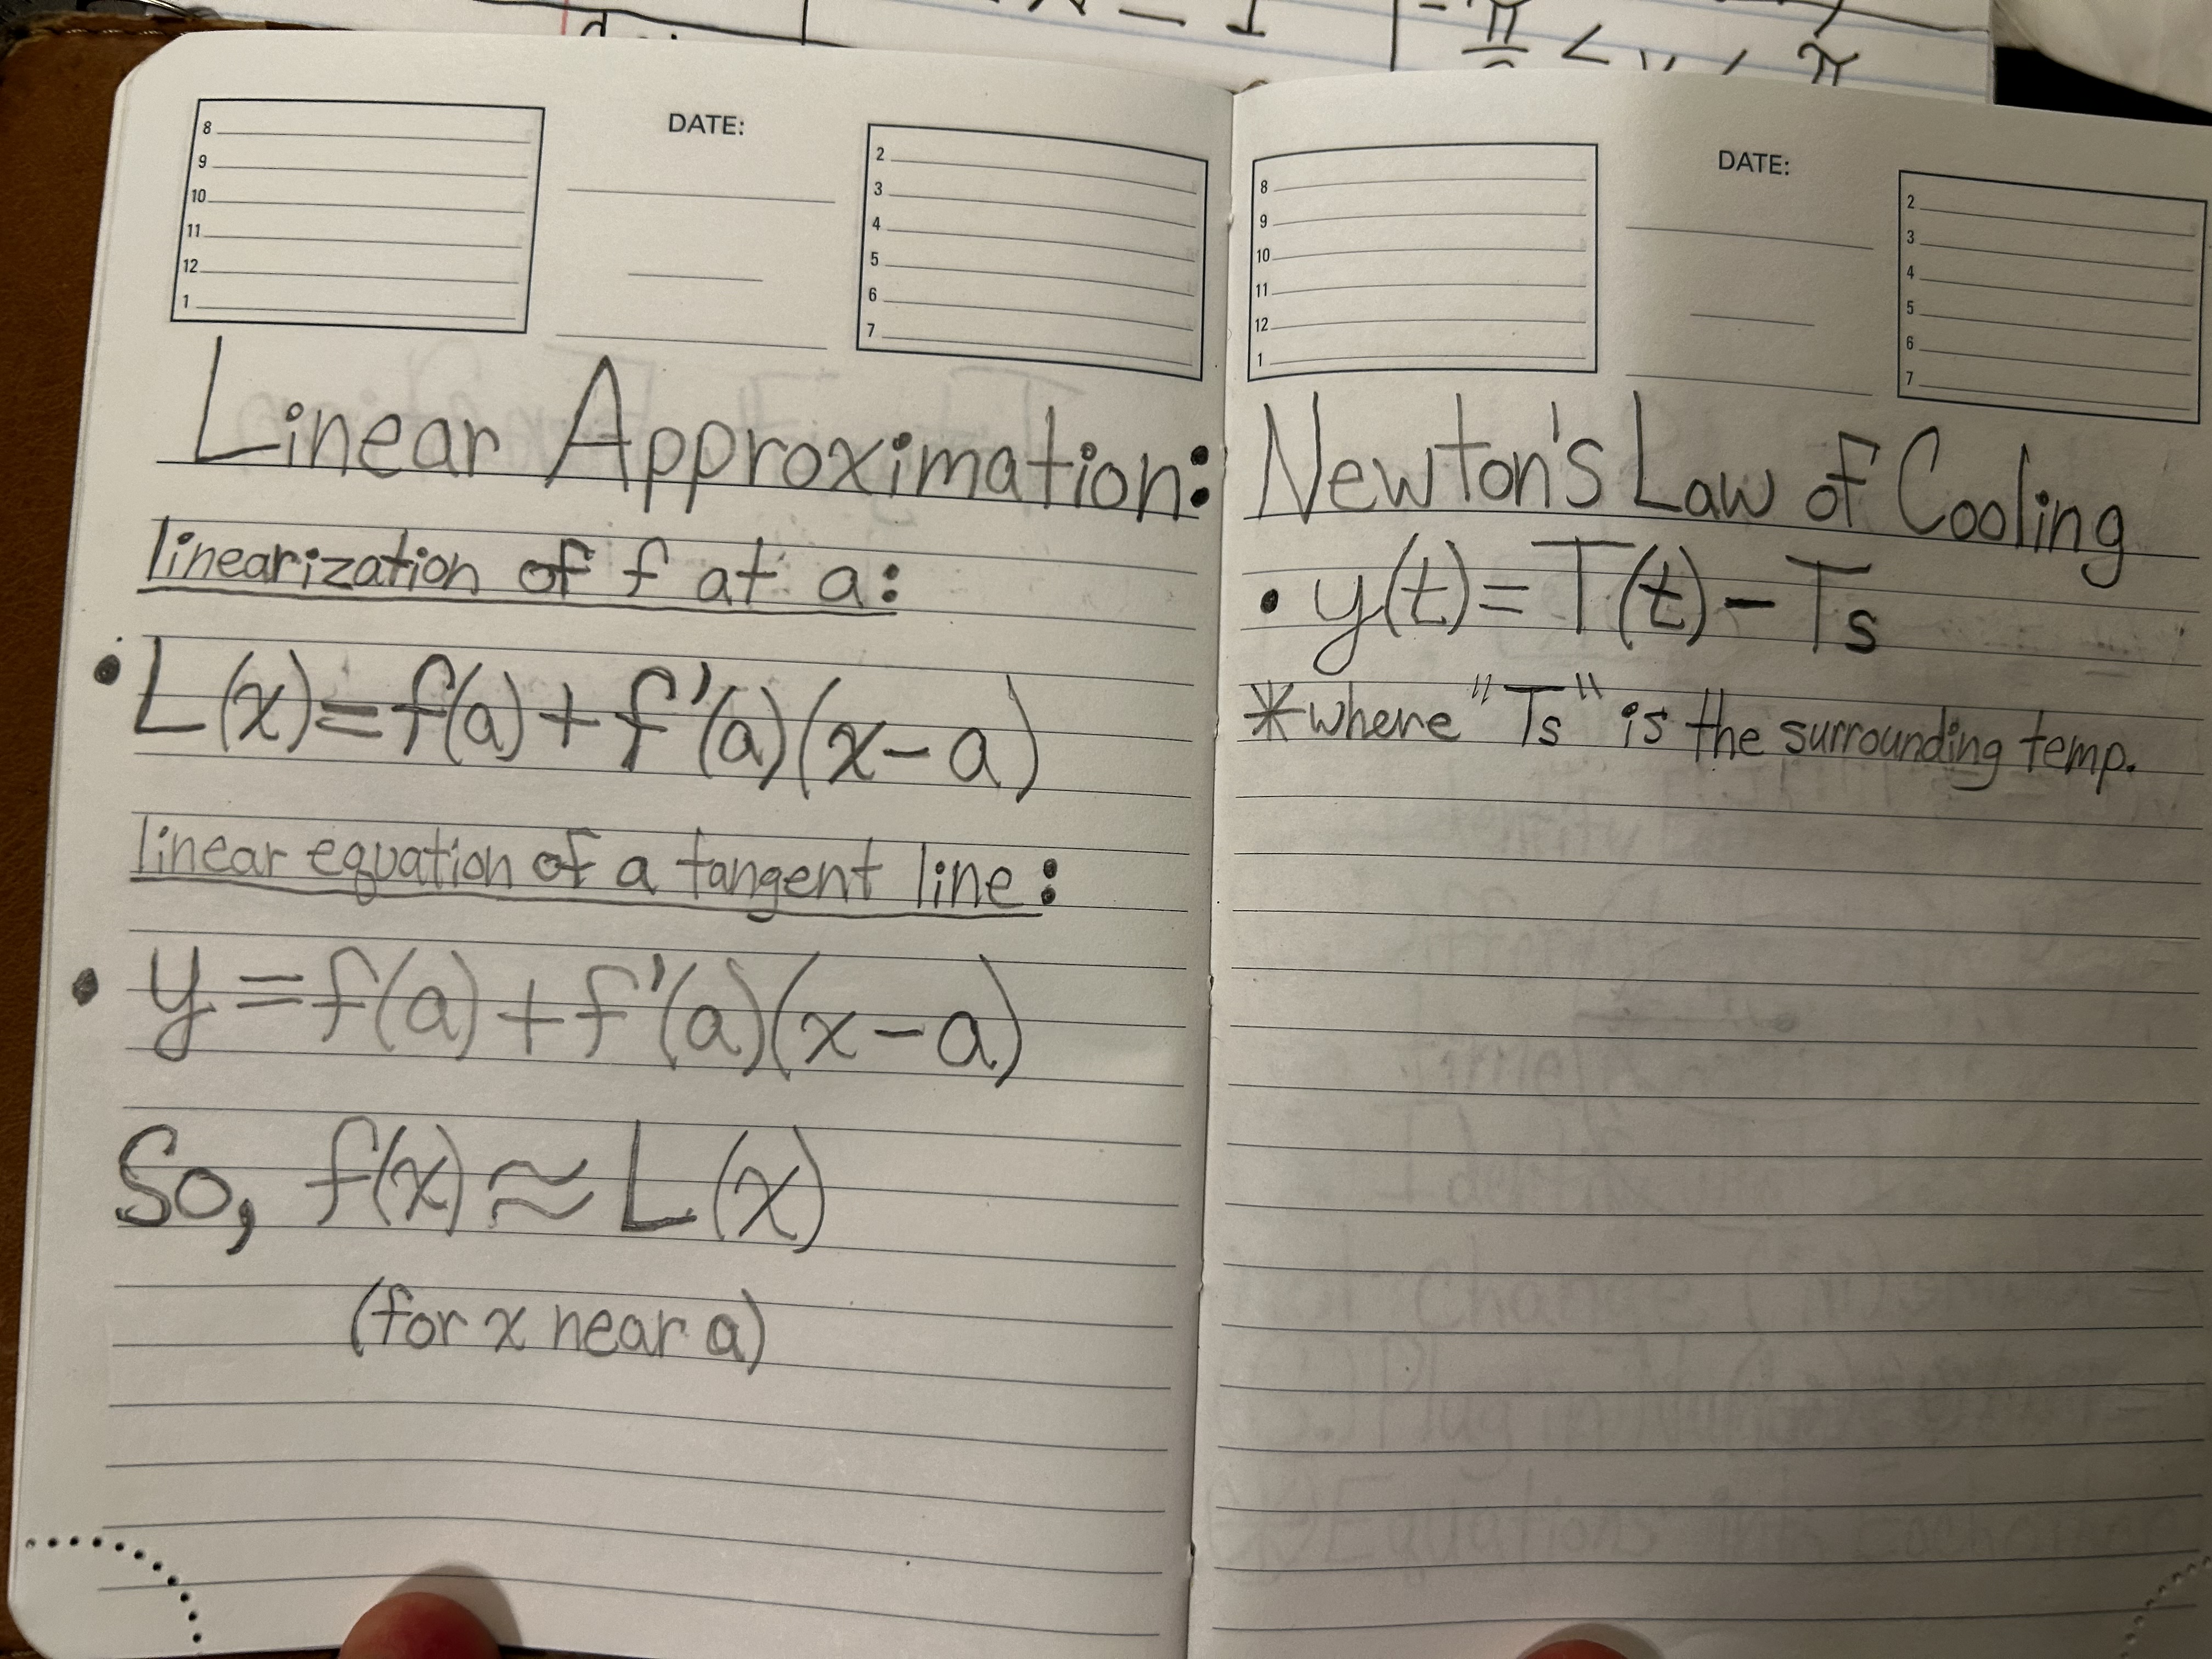 DATE:
8
9
10
11
12
1
2
3
4
5
6
7
Linear Approximation:
linearization of f at a:
• L(x) = f(a) + f'(a)(x - a)
linear equation of a tangent line:
• y = f(a) + f'(a)(x - a)
So, f(x) ≈ L(x)
(for x near a)
DATE:
8
9
10
11
12
1
2
3
4
5
6
7
Newton's Law of Cooling
• y(t) = T(t) - Ts
*where "Ts" is the surrounding temp.